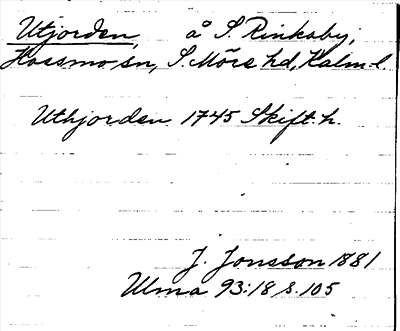 Utjorden, å S. Rinkaby,
Hossmo sn, S. Möre hd, Kalm. l.
Uthjorden 1745 Skift. h.
J. Jonsson 1881
Ulma 93:18 s. 105